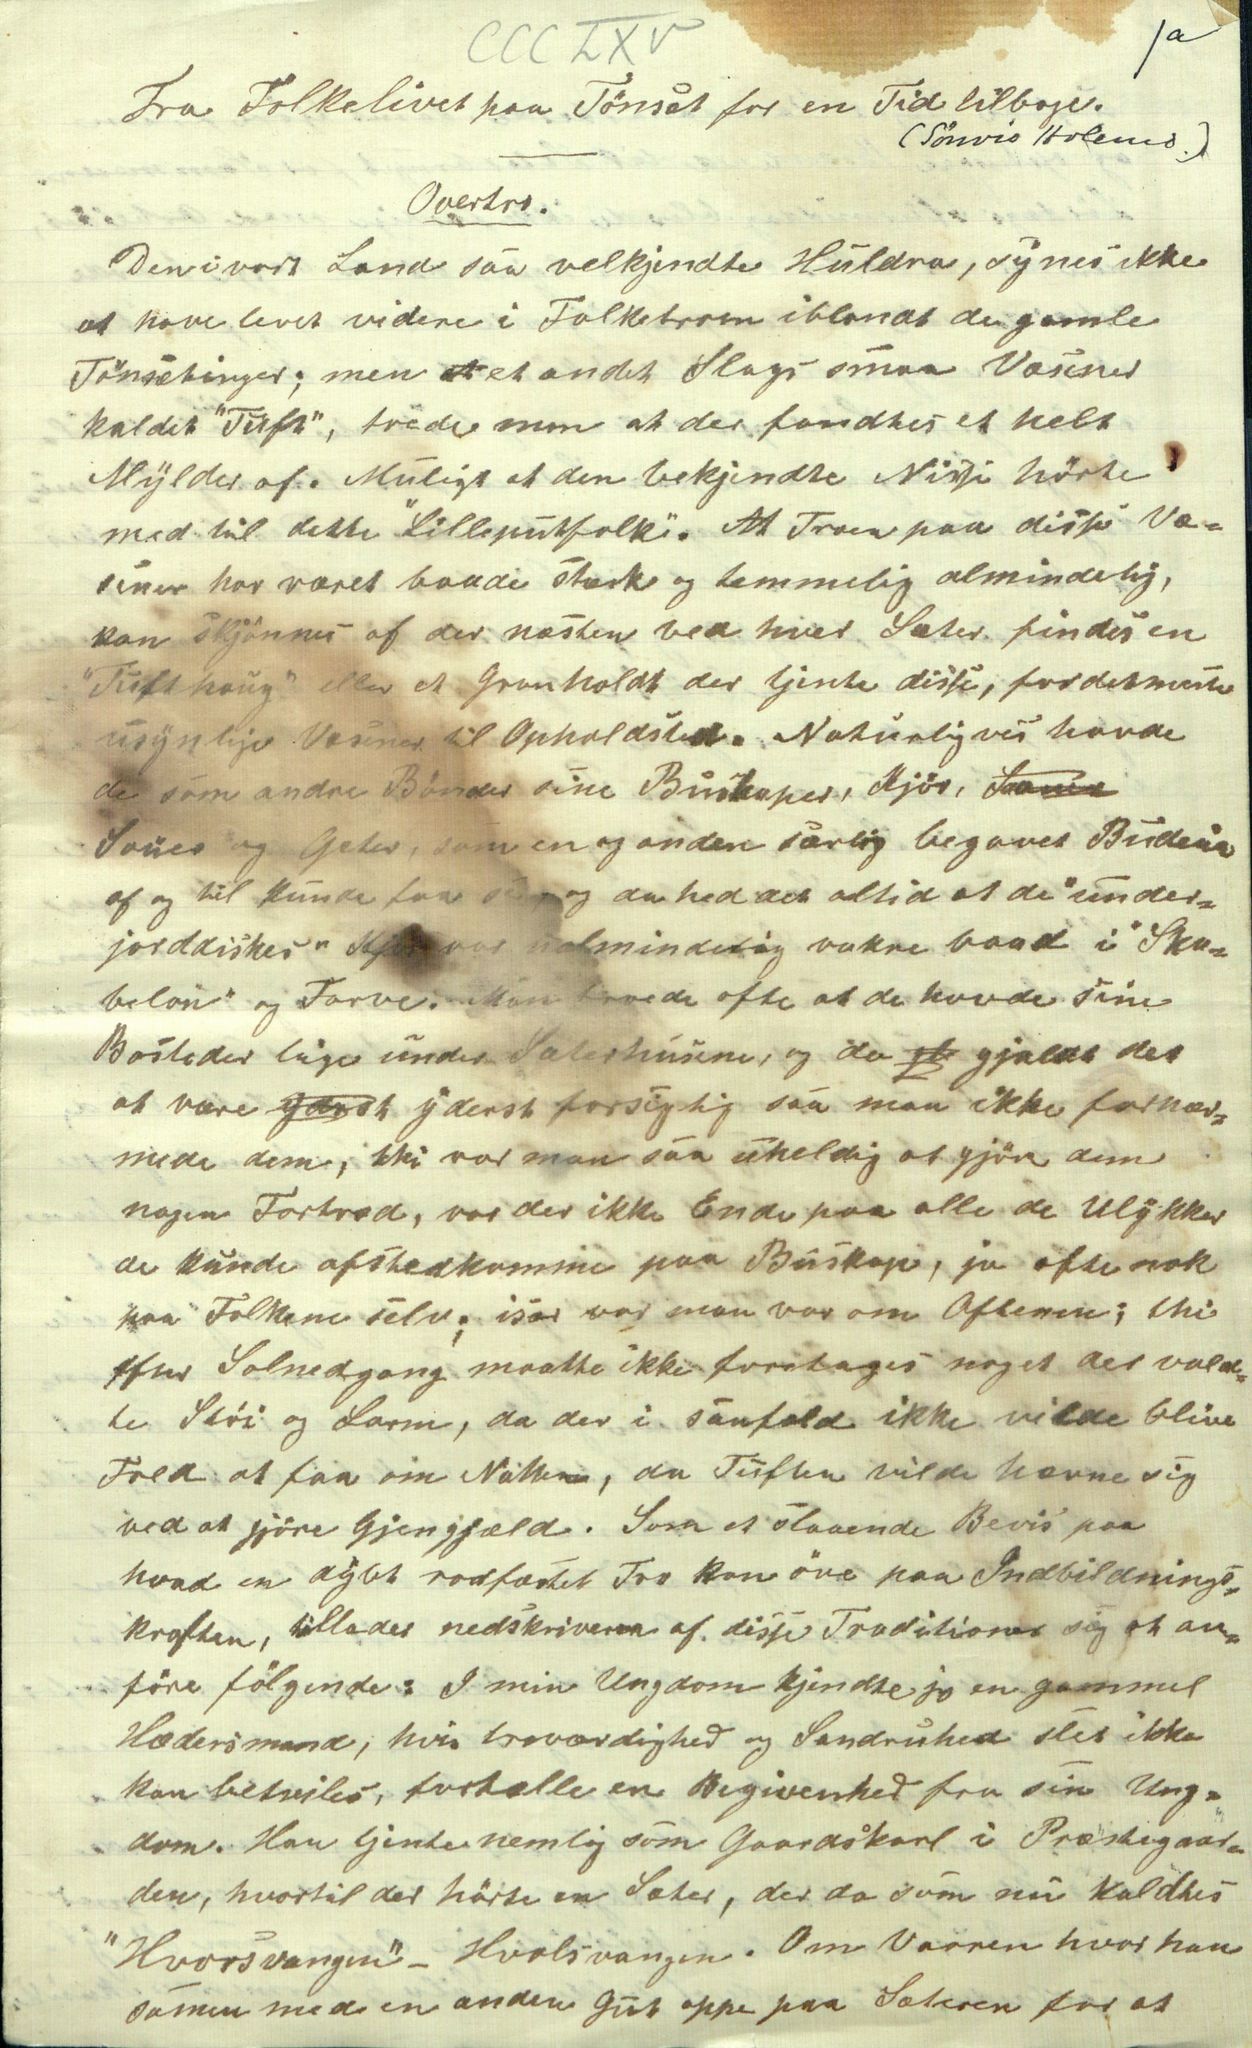 CCCLXV
1a
Fra Folkelivet paa Tönsæt for en Tid tilbage.
(Sönvis Holems.)
Overtro.
Den i vort Land saa velkjendte Huldra, synes ikke
at have levet videre i Folketroen iblandt de gamle
Tönsetinger; men et andet Slags smaa Væsener
kaldet "Tuft", troede man at der fandtes et helt
Mylder af. Muligt at den bekjendte Nisse hörte
med til dette "Lilleputfolk". At Troen paa disse Væ-
sener har været baade stærk og temmelig almindelig,
kan skjönnes af der næsten ved hver Sæter findes en
"Tufthaug" eller et Granholdt der tjente disse, fordetmeste
usynlige Væsener til Opholdsted. Naturligvis havde
de som andre Bönder sine Buskaper, Kjör,
Sauer og Geter, som en og anden særlig begavet Budeia
af og til kunde faa se, og da hed det altid at de "under-
jorddiskes" Kjör var ualmindelig vakre baad i "Ska-
belon" og Farve. Man troede ofte at de havde sine
Bosteder lige under Sæterhusene, og da gjaldt det
at være yderst forsigtig saa man ikke fornær-
mede dem, thi var man saa uheldig at gjöre dem
nogen Fortræd, var der ikke Ende paa alle de Ulykker
de kunde afstedkomme paa Buskap, ja ofte nok
paa Folkene selv; især var man var om Aftenen; thi
efter Solnedgang maatte ikke foretages noget der vold-
te Stöi og Larm, da der i saafald ikke vilde blive
Fred at faa om Natten, da Tuften vilde hævne sig
ved at gjöre Gjengjæld. Som et slaaende Bevis paa
hvad en dybt rodfæstet Tro kan öve paa Indbildnings-
kraften, tillader nedskriveren af disse Traditioner sig at an-
före fölgende: I min Ungdom kjendte jo en gammel
Hædersmand, hvis troværdighed og Sandruhed slet ikke
kan betviles, fortælle en Begivenhed fra sin Ung-
dom. Han tjente nemlig som Gaardskarl i Præstegaar-
den, hvortil der hörte en Sæter, der da som nu kaldtes
"Hvorsvangen" - Hvalsvangen. Om Vaaren hvor han
samen med en anden Gut oppe paa Sæteren for at